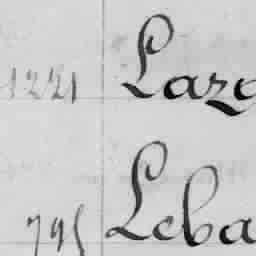 1221 Laze
795 Leba